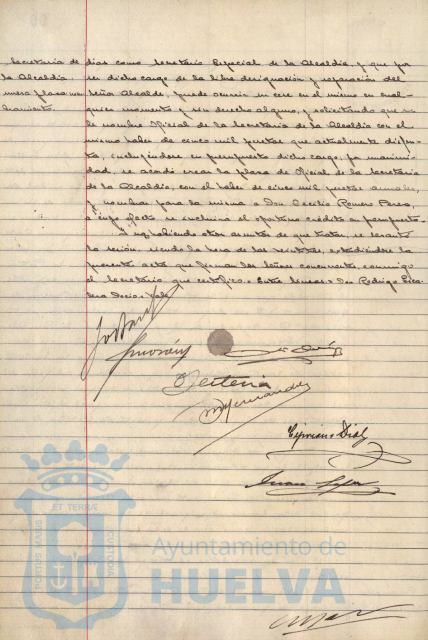 Secretaria de días como Secretario Especial de la Alcaldía, y que por
la Alcaldía. ser dicho cargo de la libre designación y separación del
Señor Alcalde, puede ocurrir su cese en el mismo en cual-
quier momento y sin derecho alguno, y solicitando que se
le nombre Oficial de la Secretaria de la Alcaldía con el
mismo haber de cinco mil pesetas que actualmente disfru-
ta, incluyéndose en presupuesto dicho cargo, por unanimi-
dad, se acordó crear la plaza de Oficial de la Secretaria
de la Alcaldía, con el haber de cinco mil pesetas anuales,
y nombrar para la misma a Don Cecilio Romero Perea,
a cuyo efecto se incluirá el oportuno crédito a presupuesto.
Y no habiendo otros asuntos de que tratar, se levantó
la sesión, siendo la hora de las veintitres, extendiéndose la
presente acta que firman los Señores concurrentes, conmigo
el Secretario que certifico. Entre líneas = Don Rodrigo
Vale
Hernández
Cipriano Díaz
PORTUS MARIS
ET TERRÆ
CUSTODIA
Ayuntamiento de
HUELVA